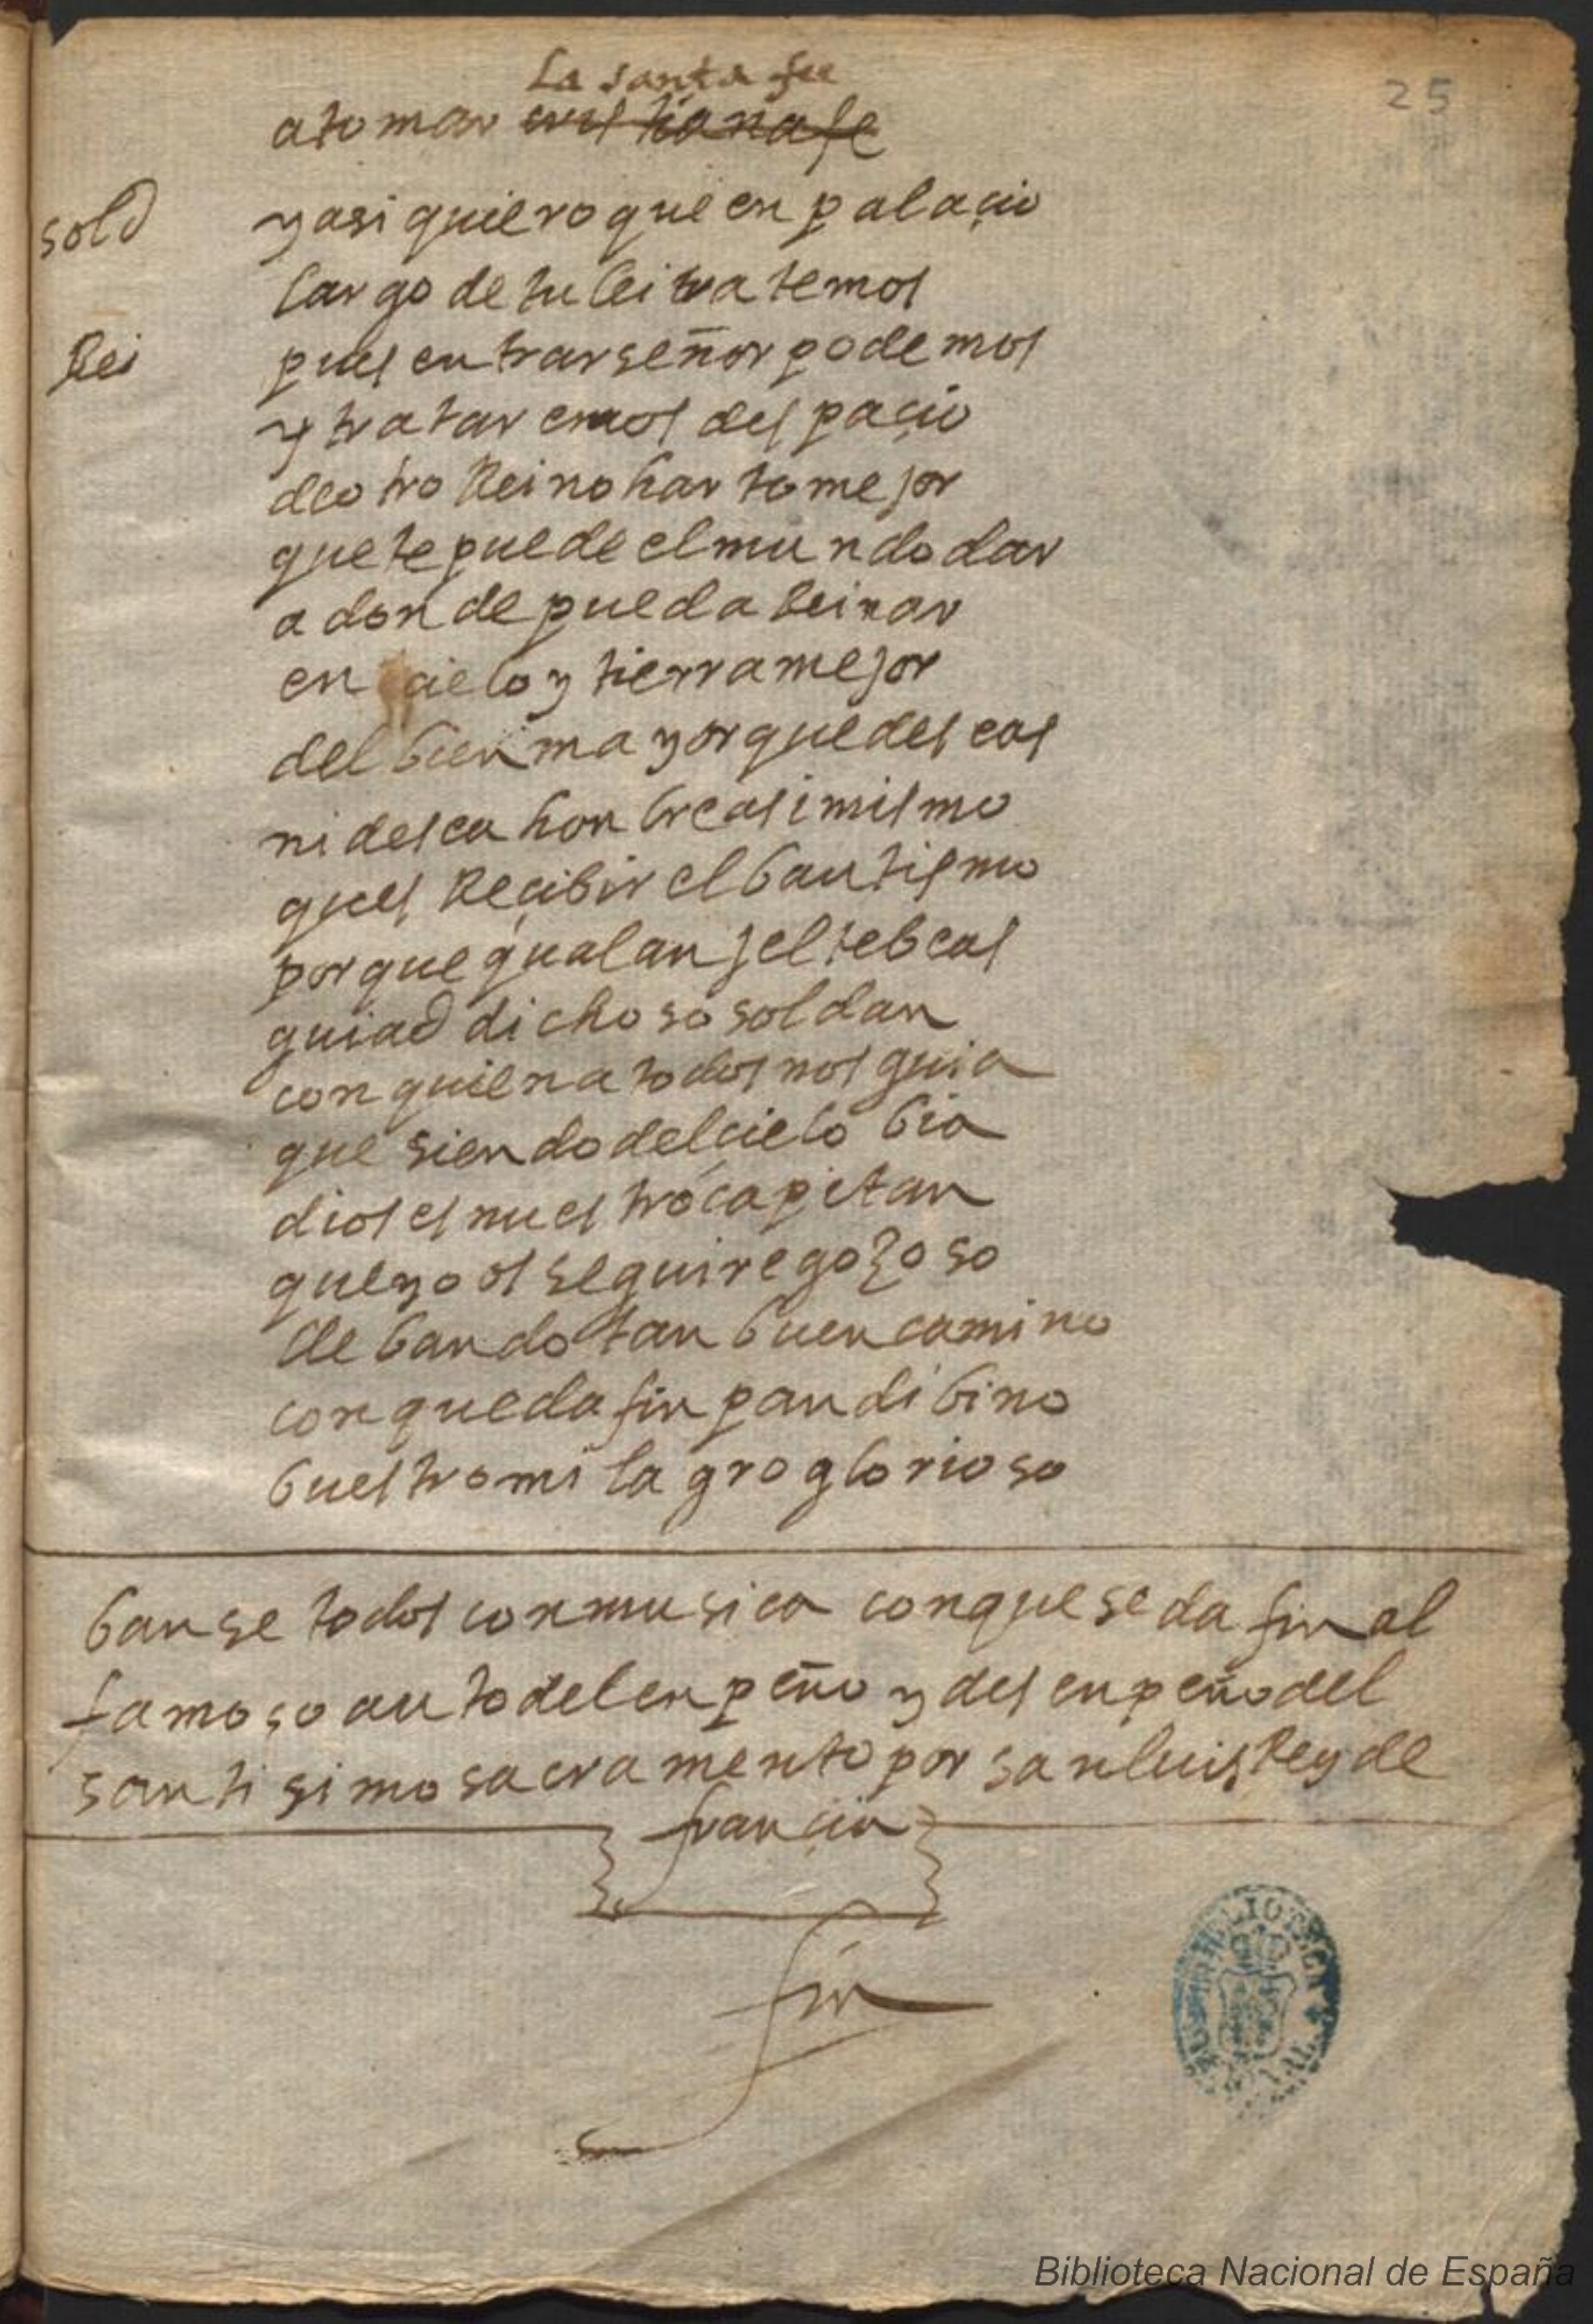 25
La santa fee
a tomar cristiana fe
sold y asi quiero que en palaçio
largo de tu lei tratemos
Rei pues entrar señor podemos
y trataremos despaçio
de otro Reino harto mejor
que te puede el mundo dar
a donde pueda Reinar
en cielo y tierra mejor
del bien mayor que deseas
ni desea honbre asi mismo
ques Reçibir el bautismo
porque qual anjel te beas
guiad dichoso soldan
con quien a todos nos guia
que siendo del cielo bia
dios es nuestro capitan
que yo os seguire gozoso
llebando tan buen camino
con que da fin pan dibino
buestro milagro glorioso
banse todos con musica con que se da fin al
famoso auto del enpeño y desenpeño del
santisimo sacramento por san luis Rey de
françia
fin
BIBLIOTECA
Biblioteca Nacional de España